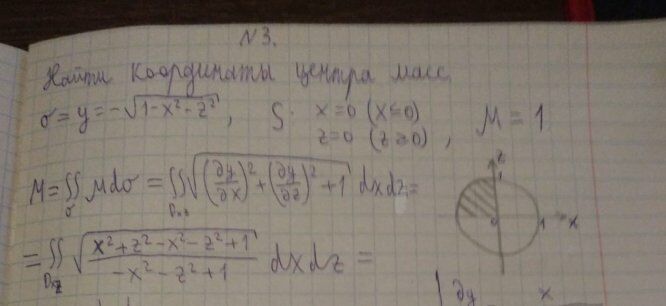 N3.
Найти координаты центра масс
σ = y = -√(1-x²-z²), S: x=0 (x≤0)
z=0 (z≥0), M = 1
M = ∬σ Mdσ = ∬Dxz √((∂y/∂x)² + (∂y/∂z)² + 1) dxdz =
z
1
0 1 x
= ∬Dxz √((x²+z²-x²-z²+1)/(-x²-z²+1)) dxdz =
∂y x